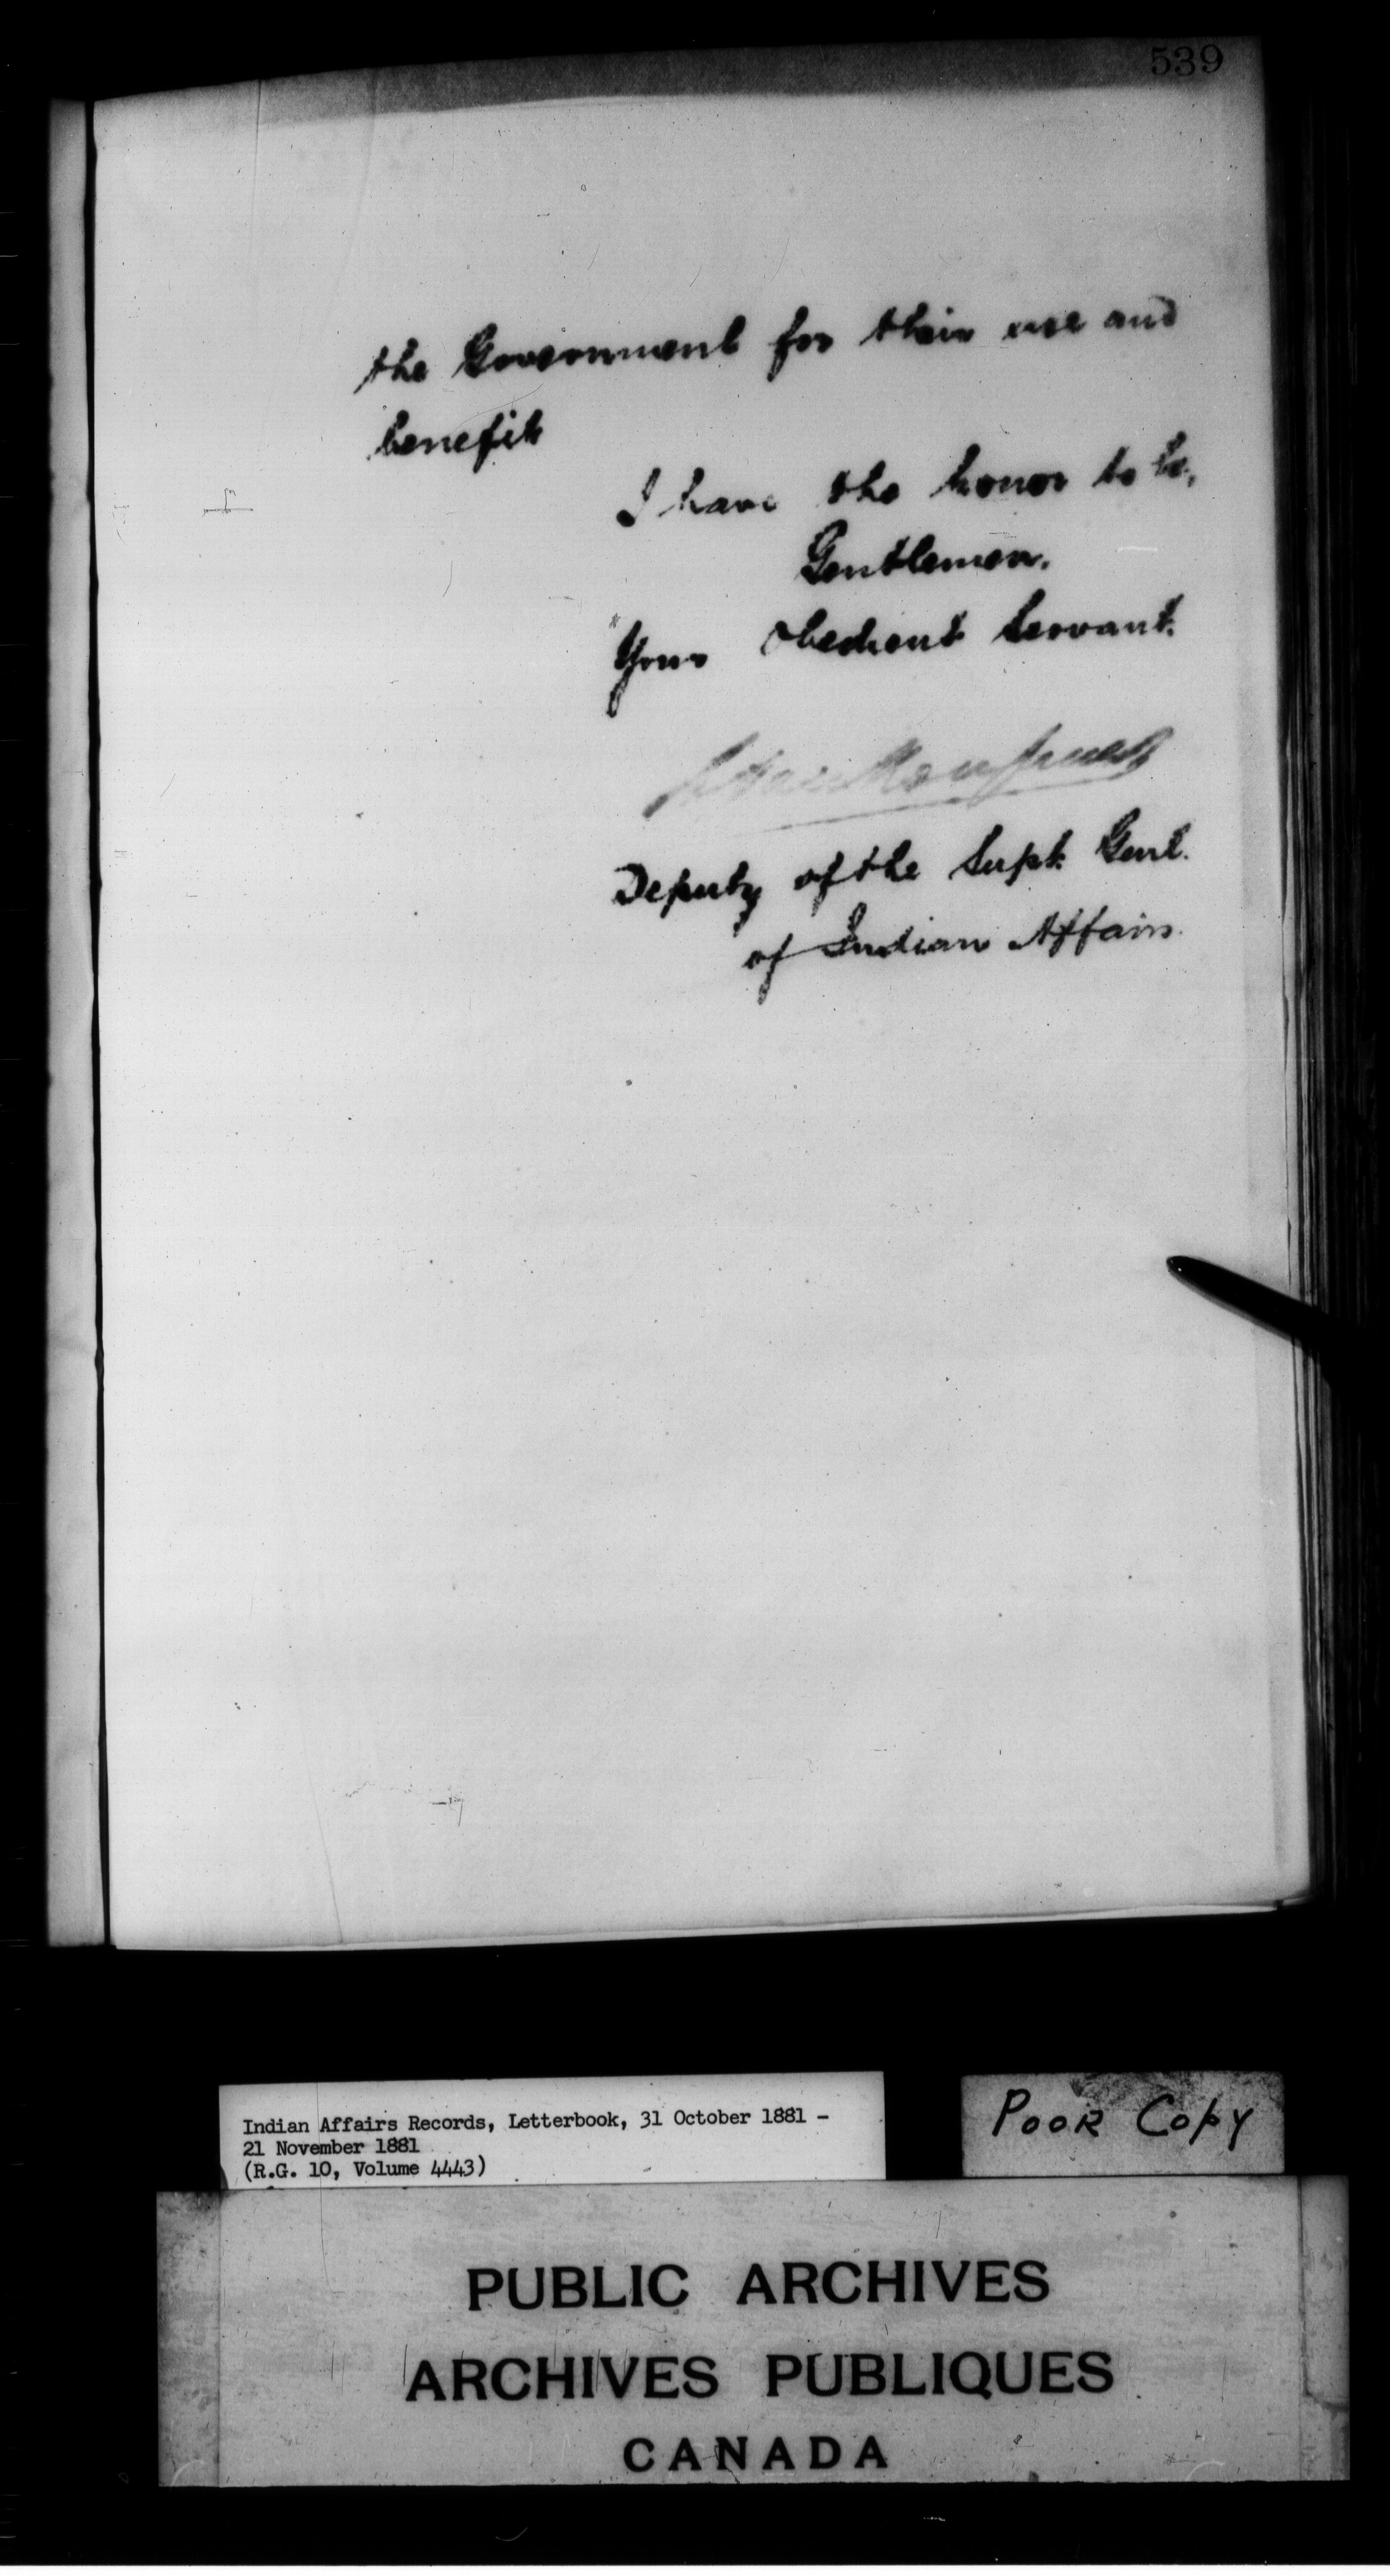 539
the Government for their use and
benefit
I have the honor to be,
Gentlemen.
Your Obedient Servant.
Deputy of the Supt. Genl.
of Indian Affairs.
Indian Affairs Records, Letterbook, 31 October 1881 -
21 November 1881
(R.G. 10, Volume 4443)
POOR COPY
PUBLIC ARCHIVES
ARCHIVES PUBLIQUES
CANADA